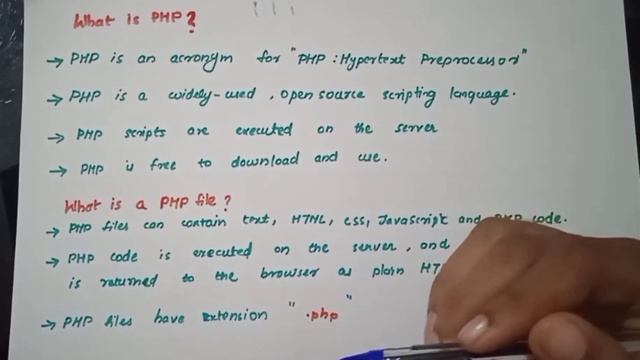 What is PHP?
→ PHP is an acronym for "PHP : Hypertext Preprocessor"
→ PHP is a widely-used, open source scripting language.
→ PHP scripts are executed on the server
→ PHP is free to download and use.
What is a PHP file?
→ PHP files can contain text, HTML, CSS, JavaScript and PHP code.
→ PHP code is executed on the server, and
is returned to the browser as plain HT
→ PHP files have extension ".php"